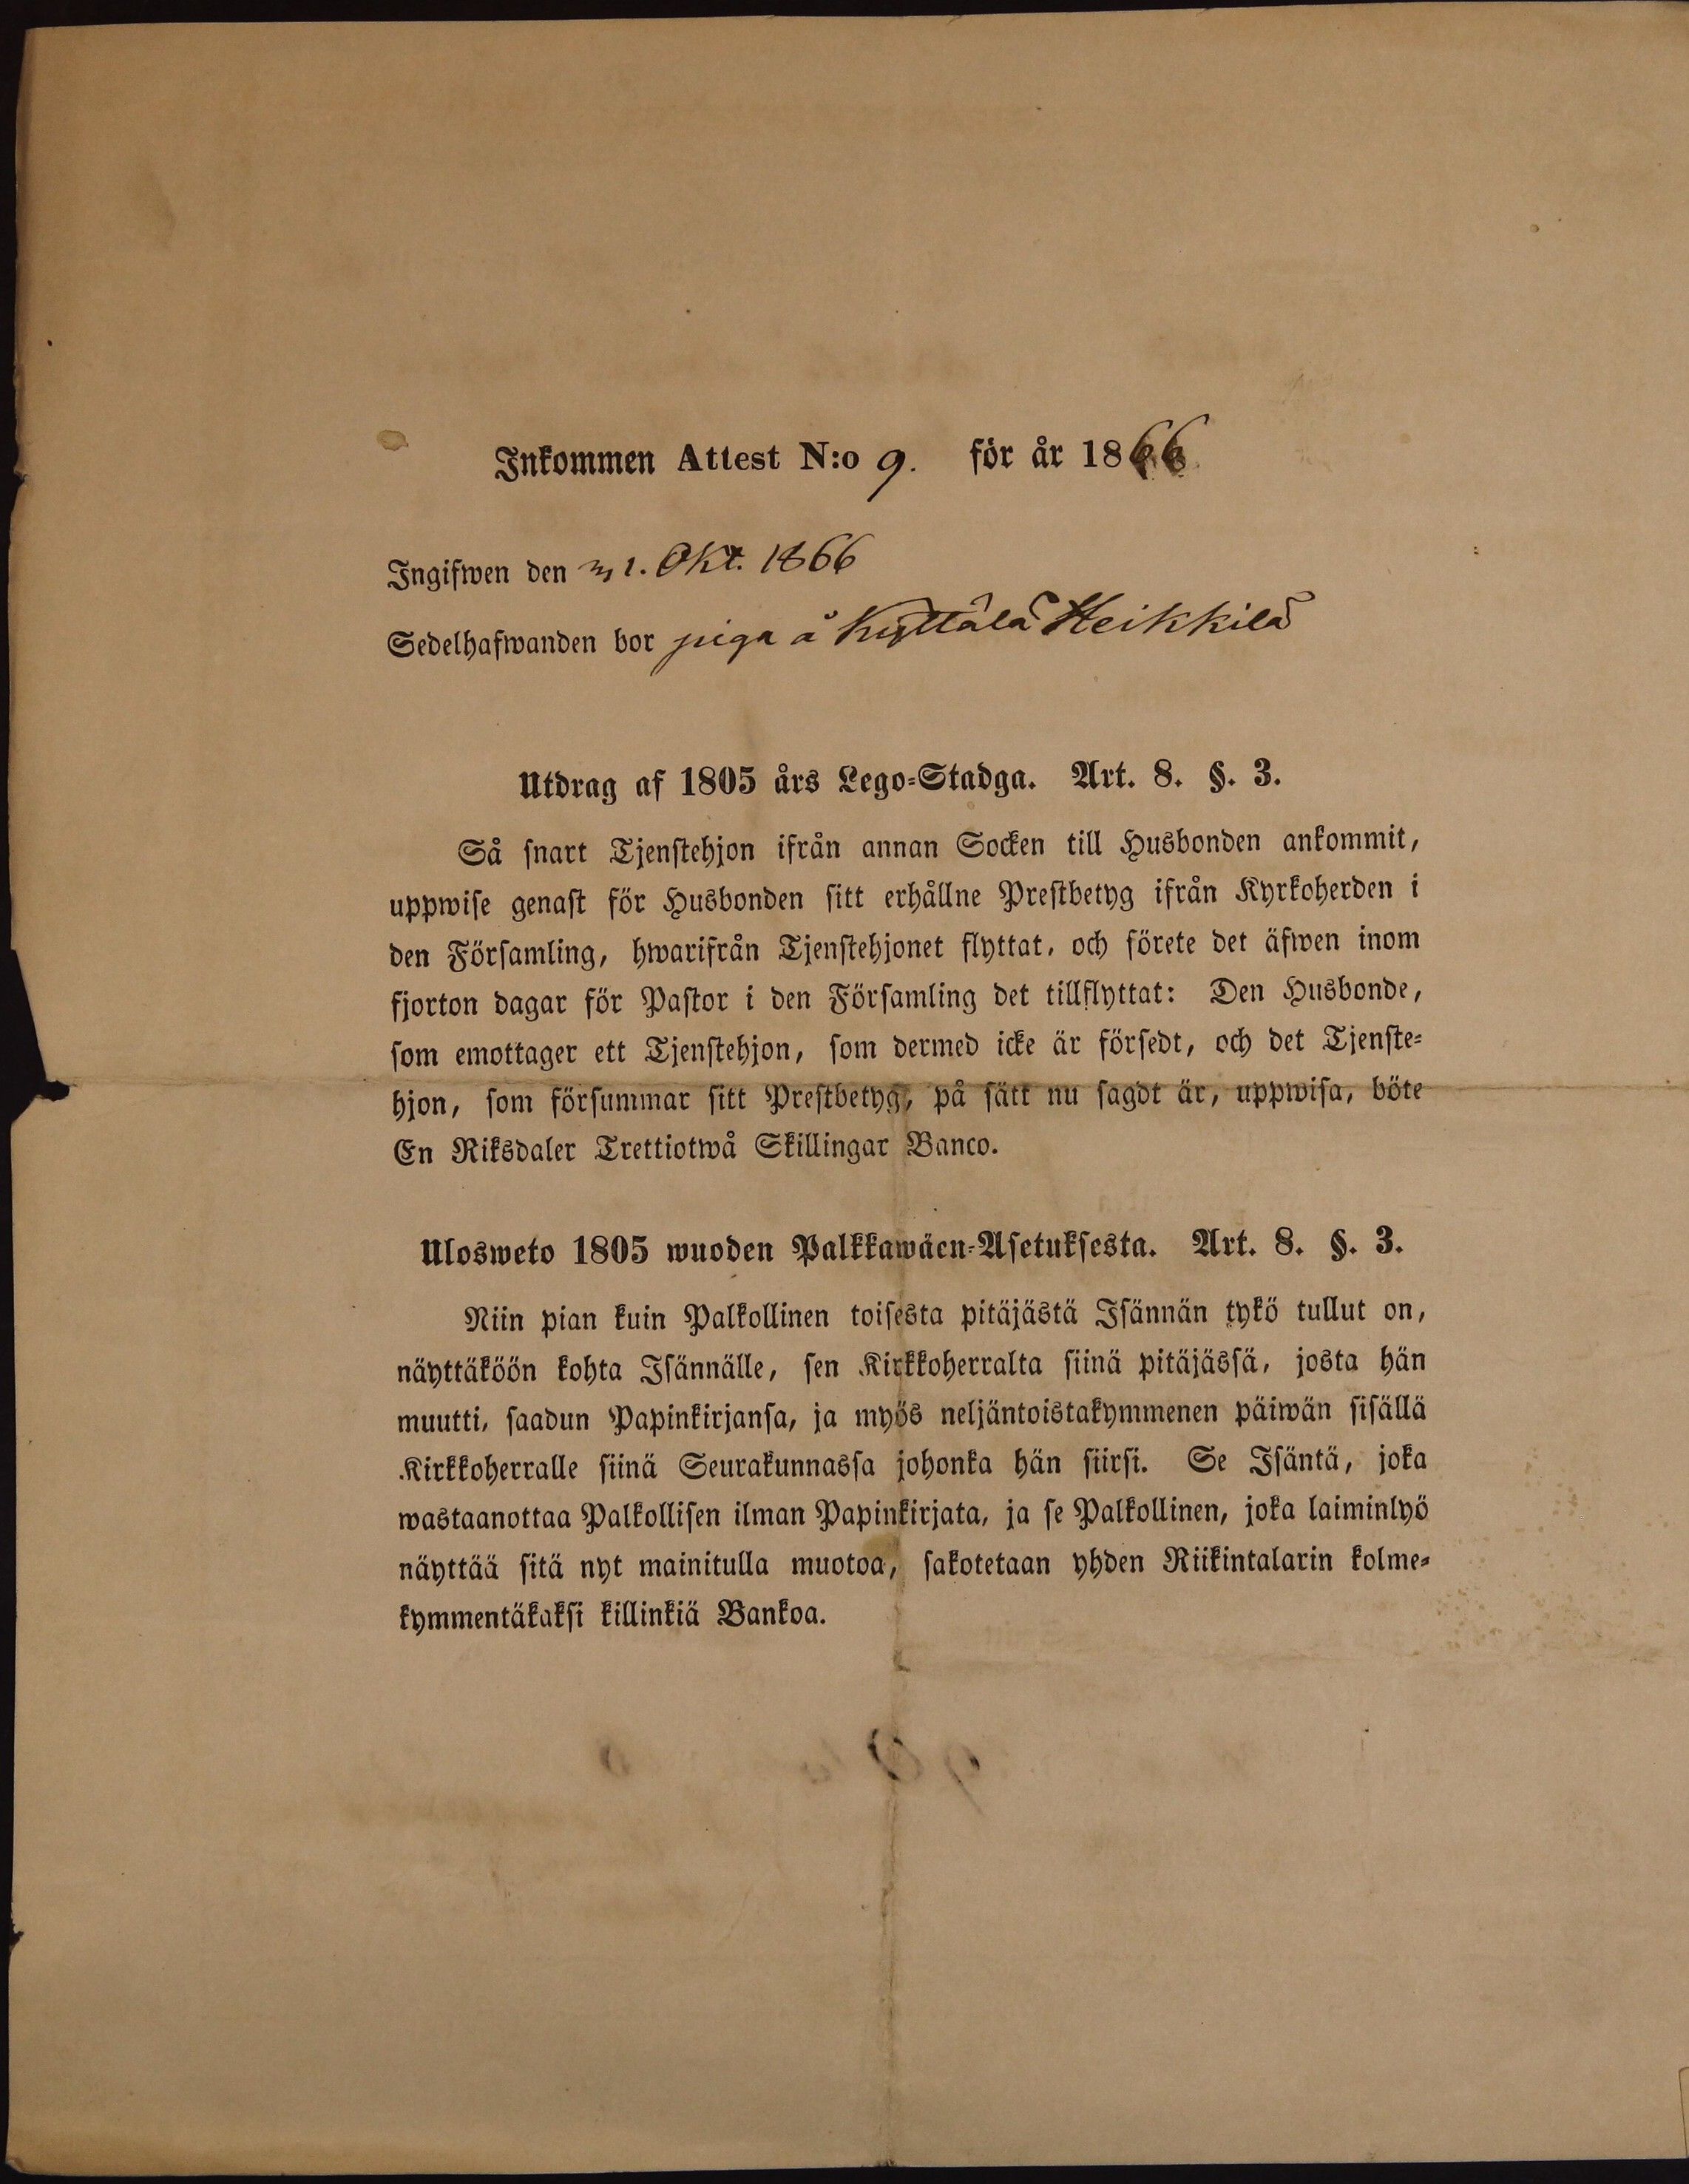 Inkommen Attest N:o 9. för år 1866
Ingifwen den 31. Okt. 1866
Sedelhafwanden bor piga å Kyttälä Heikkilä
Utdrag af 1805 års Lego-Stadga. Art. 8. §. 3.
Så snart Tjenstehjon ifrån annan Socken till Husbonden ankommit,
uppwise genast för Husbonden sitt erhållne Prestbetyg ifrån Kyrkoherden i
den Församling, hwarifrån Tjenstehjonet flyttat, och förete det äfwen inom
fjorton dagar för Pastor i den Församling det tillflyttat: Den Husbonde,
som emottager ett Tjenstehjon, som dermed icke är försedt, och det Tjenste-
hjon, som försummar sitt Prestbetyg, på sätt nu sagdt är, uppwisa, böte
En Riksdaler Trettiotwå Skillingar Banco.
Ulosweto 1805 wuoden Palkkawäen-Asetuksesta. Art. 8. §. 3.
Niin pian kuin Palkollinen toisesta pitäjästä Isännän tykö tullut on,
näyttäköön kohta Isännälle, sen Kirkkoherralta siinä pitäjässä, josta hän
muutti, saadun Papinkirjansa, ja myös neljäntoistakymmenen päiwän sisällä
Kirkkoherralle siinä Seurakunnassa johonka hän siirsi. Se Isäntä, joka
wastaanottaa Palkollisen ilman Papinkirjata, ja se Palkollinen, joka laiminlyö
näyttää sitä nyt mainitulla muotoa, sakotetaan yhden Riikintalarin kolme-
kymmentäkaksi killinkiä Bankoa.